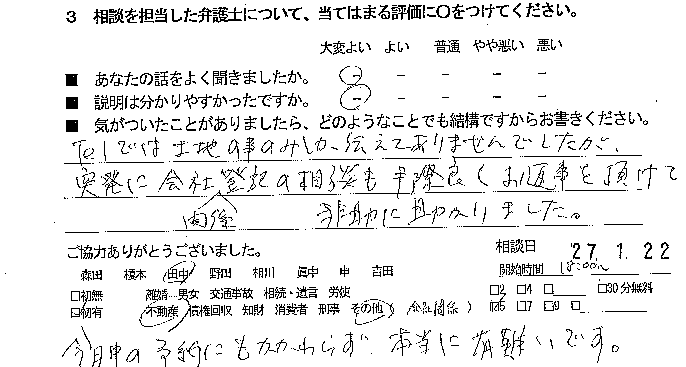 3 相談を担当した弁護士について、当てはまる評価に○をつけてください。
大変よい よい 普通 やや悪い 悪い
■ あなたの話をよく聞きましたか。 － － － － －
■ 説明は分かりやすかったですか。 － － － － －
■ 気がついたことがありましたら、どのようなことでも結構ですからお書きください。
Telでは土地の事のみしか伝えてありませんでしたが、
実際に会社登記の相談も手際良くお返事を頂けて
関係 非常に助かりました。
ご協力ありがとうございました。 相談日 '27. 1. 22
森田 榎本 田中 野田 相川 眞中 申 吉田 開始時間 18:00～
□初無 離婚・男女 交通事故 相続・遺言 労災 □2 □4 □ □30分無料
□初有 不動産 債権回収 知財 消費者 刑事 その他 (会社関係) □5 □7 □9 □
今日中の予約にもかかわらず、本当に有難いです。